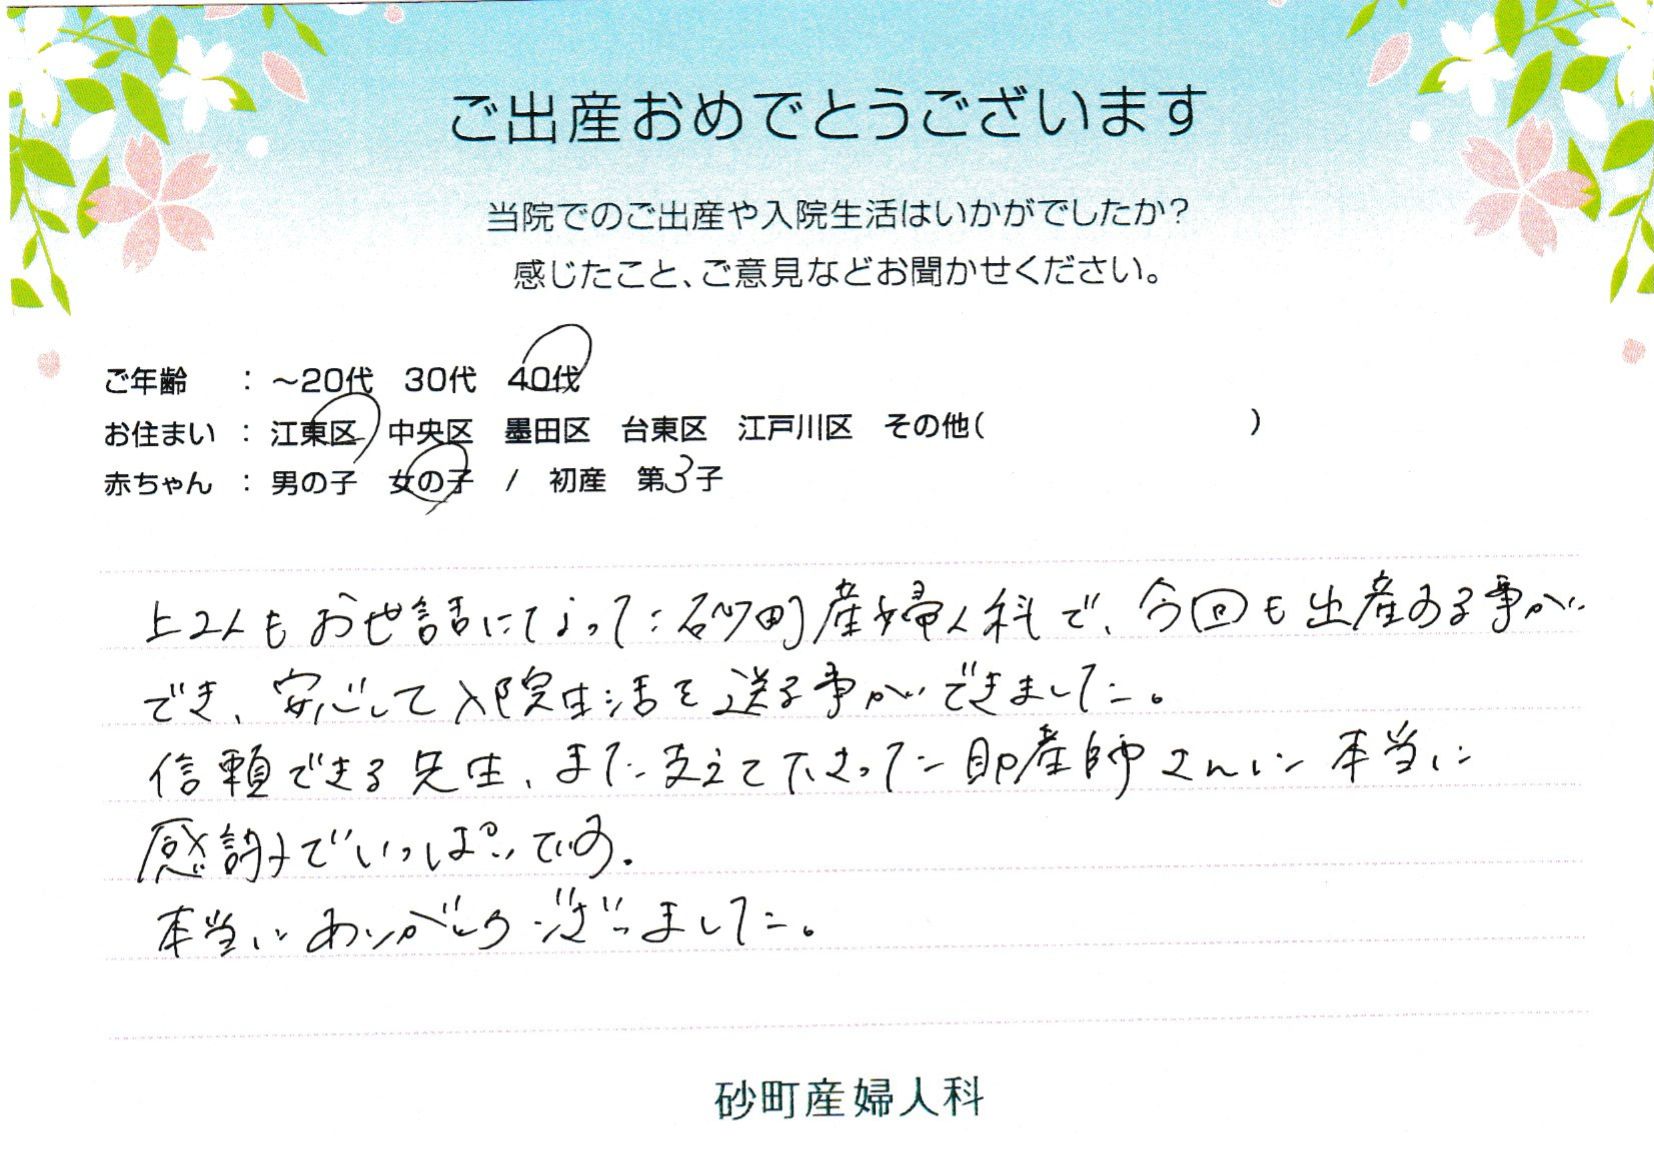 ご出産おめでとうございます
当院でのご出産や入院生活はいかがでしたか?
感じたこと、ご意見などお聞かせください。
ご年齢 : ～20代 30代 40代
お住まい : 江東区 中央区 墨田区 台東区 江戸川区 その他( )
赤ちゃん : 男の子 女の子 / 初産 第3子
上2人もお世話になった砂町産婦人科で、今回も出産する事が
でき、安心して入院生活を送る事ができました。
信頼できる先生、また支えて下さった助産師さんに本当に
感謝でいっぱいです。
本当にありがとうございました。
砂町産婦人科